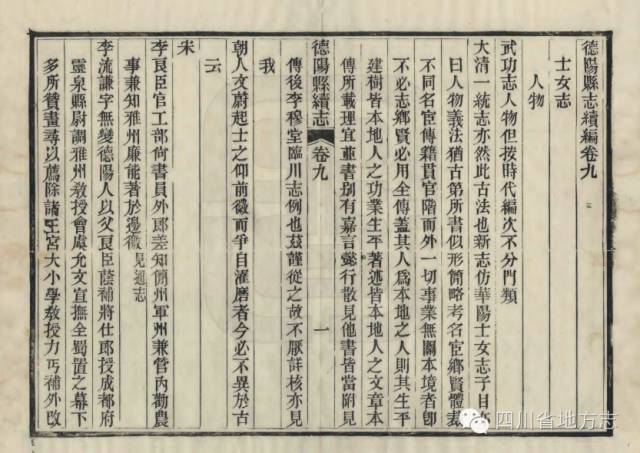 德陽縣志續編卷九
士女志
人物
武功志人物但按時代編次不分門類
大清一統志亦然此古法也新志仿華陽士女志子目亦
曰人物義法猶古第所書似形簡略考名宦鄉賢體裁
不同名宦傳籍貫官階而外一切事業無關本境者卽
不必志鄉賢必用全傳蓋其人爲本地之人則其生平
建樹皆本地人之功業生平著述皆本地人之文章本
傳所載理宜並書别有嘉言懿行散見他書皆當附見
德陽縣續志
卷九
一
傳後李穆堂臨川志例也玆謹從之故不厭詳核亦見
我
朝人文蔚起士之仰前徽而爭自濯磨者今必不異於古
云
宋
李良臣官工部尙書員外郎差知簡州軍州兼管內勸農
事兼知雅州廉能著於邊徼見通志
李流謙字無變德陽人以父良臣蔭補將仕郎授成都府
靈泉縣尉調雅州敎授會虞允文宣撫全蜀置之幕下
多所贊畫尋以薦除諸王宮大小學敎授力丐補外改
四川省地方志